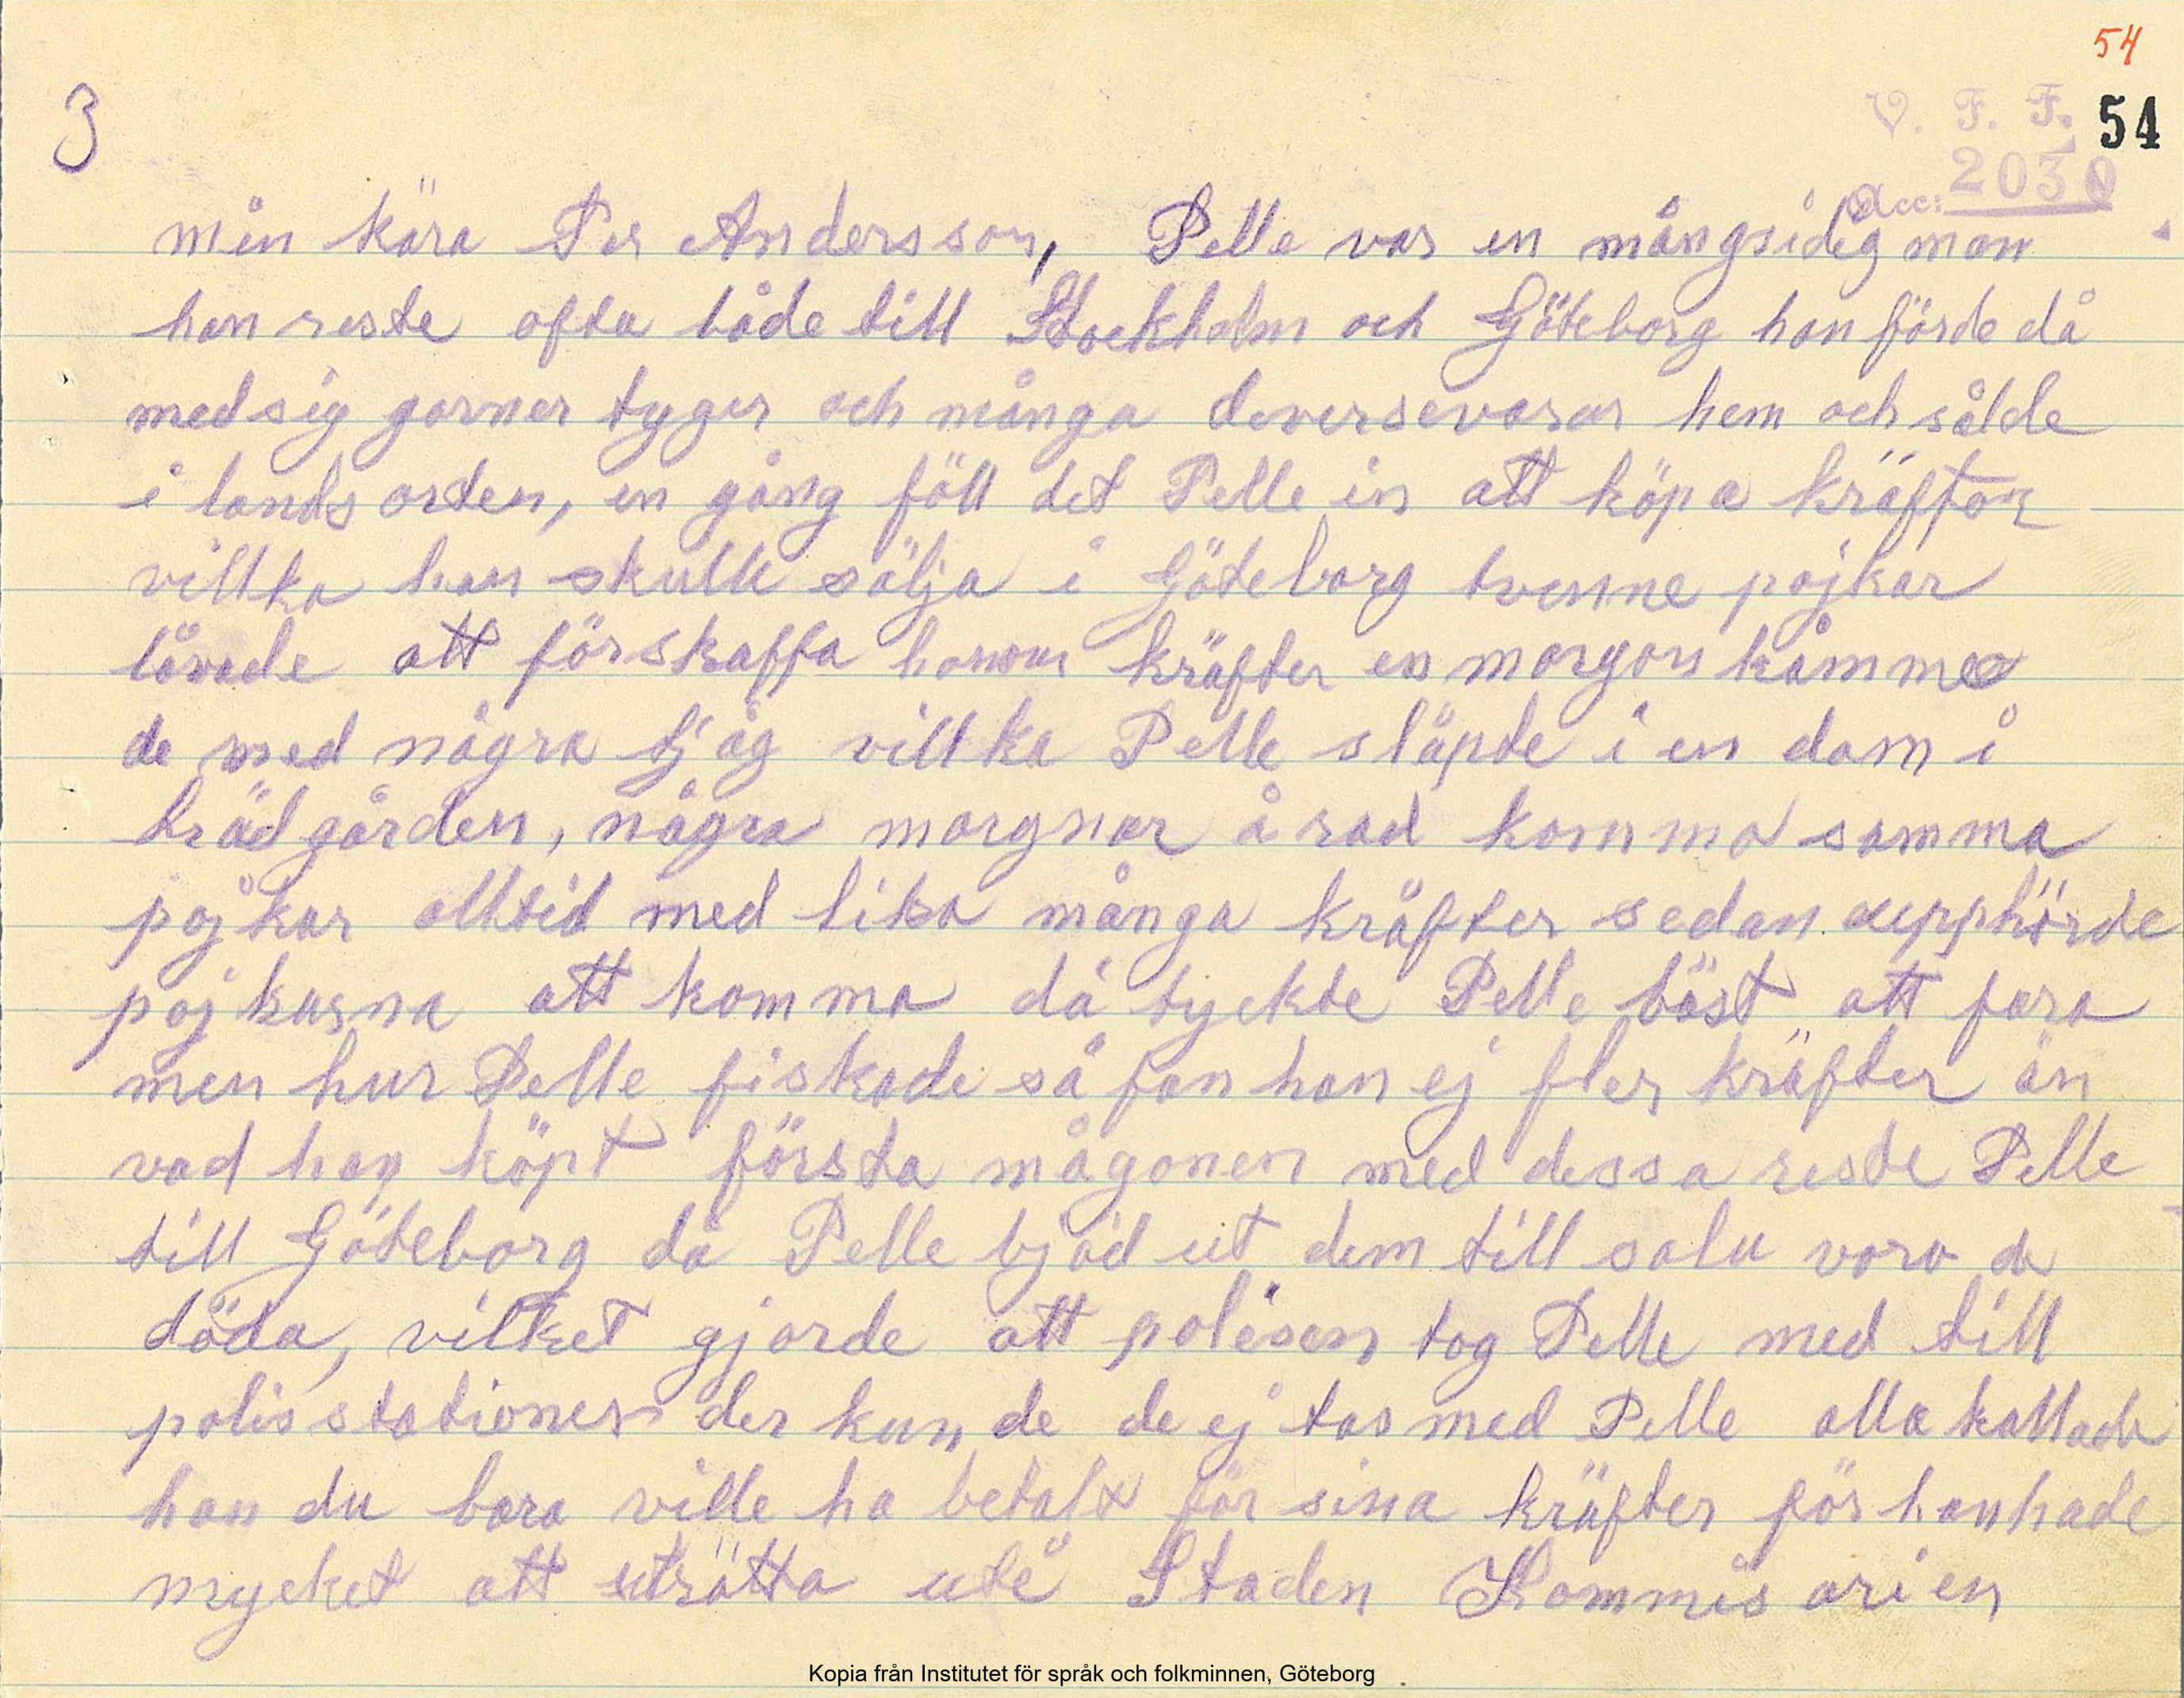 54
3
V. F. F. 54
Acc: 2030
min kära Per Andersson, Pelle var en mångsidig man
han reste ofta både till Stockholm och Göteborg han förde då
med sig garner tyger och många diversevaror hem och sålde
i landsorten, en gång föll det Pelle in att köpa kräftor
villka han skulle sälja i Göteborg tvenne pojkar
låvade att förskaffa honom kräfter en morgon kåmmo
de med några tjåg villka Pelle släpte i en dam i
trädgården, några morgnar å rad kommo samma
pojkar alltid med lika många kräfter sedan upphörde
pojkarna att komma då tyckte Pelle bäst att fara
men hur Pelle fiskade så fan han ej fler kräfter än
vad han köpt första mågonen med dessa reste Pelle
till Göteborg då Pelle bjöd ut dem till salu voro de
döda, vilket gjorde att polisen tog Pelle med till
polisstationen der kunde de ej tas med Pelle alla kallade
han du bara ville ha betalt för sina kräfter för han hade
mycket att uträtta ute i Staden Kommisarien
Kopia från Institutet för språk och folkminnen, Göteborg